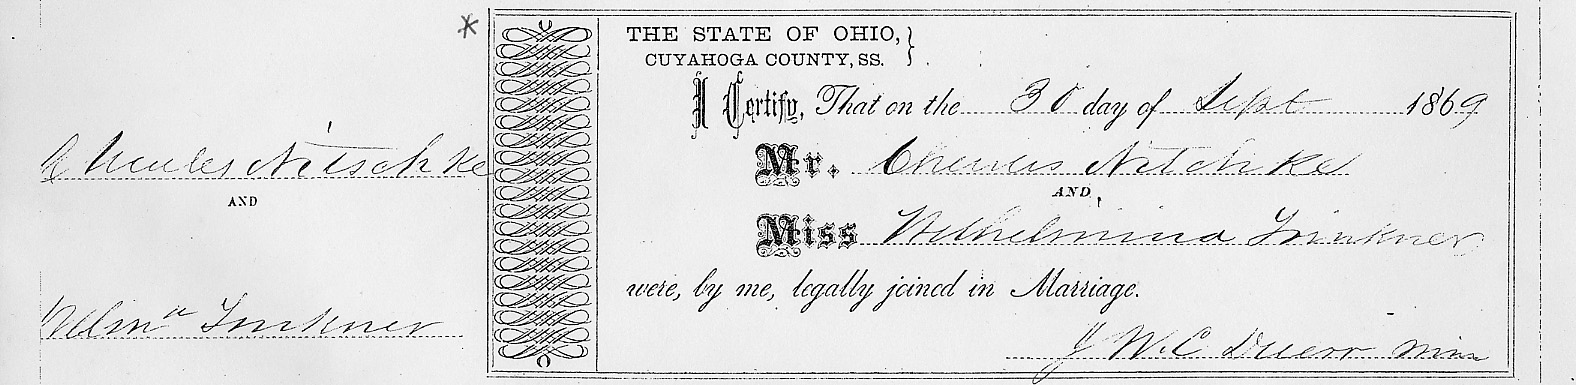 *
Charles Nitschke
AND
Wilm^a Trinkner
THE STATE OF OHIO,
CUYAHOGA COUNTY, SS.
I Certify, That on the 30 day of Sept 1869
Mr. Charles Nitchke
AND
Miss Wilhelmina Trinkner
were, by me, legally joined in Marriage.
J W. C. Duerr Min